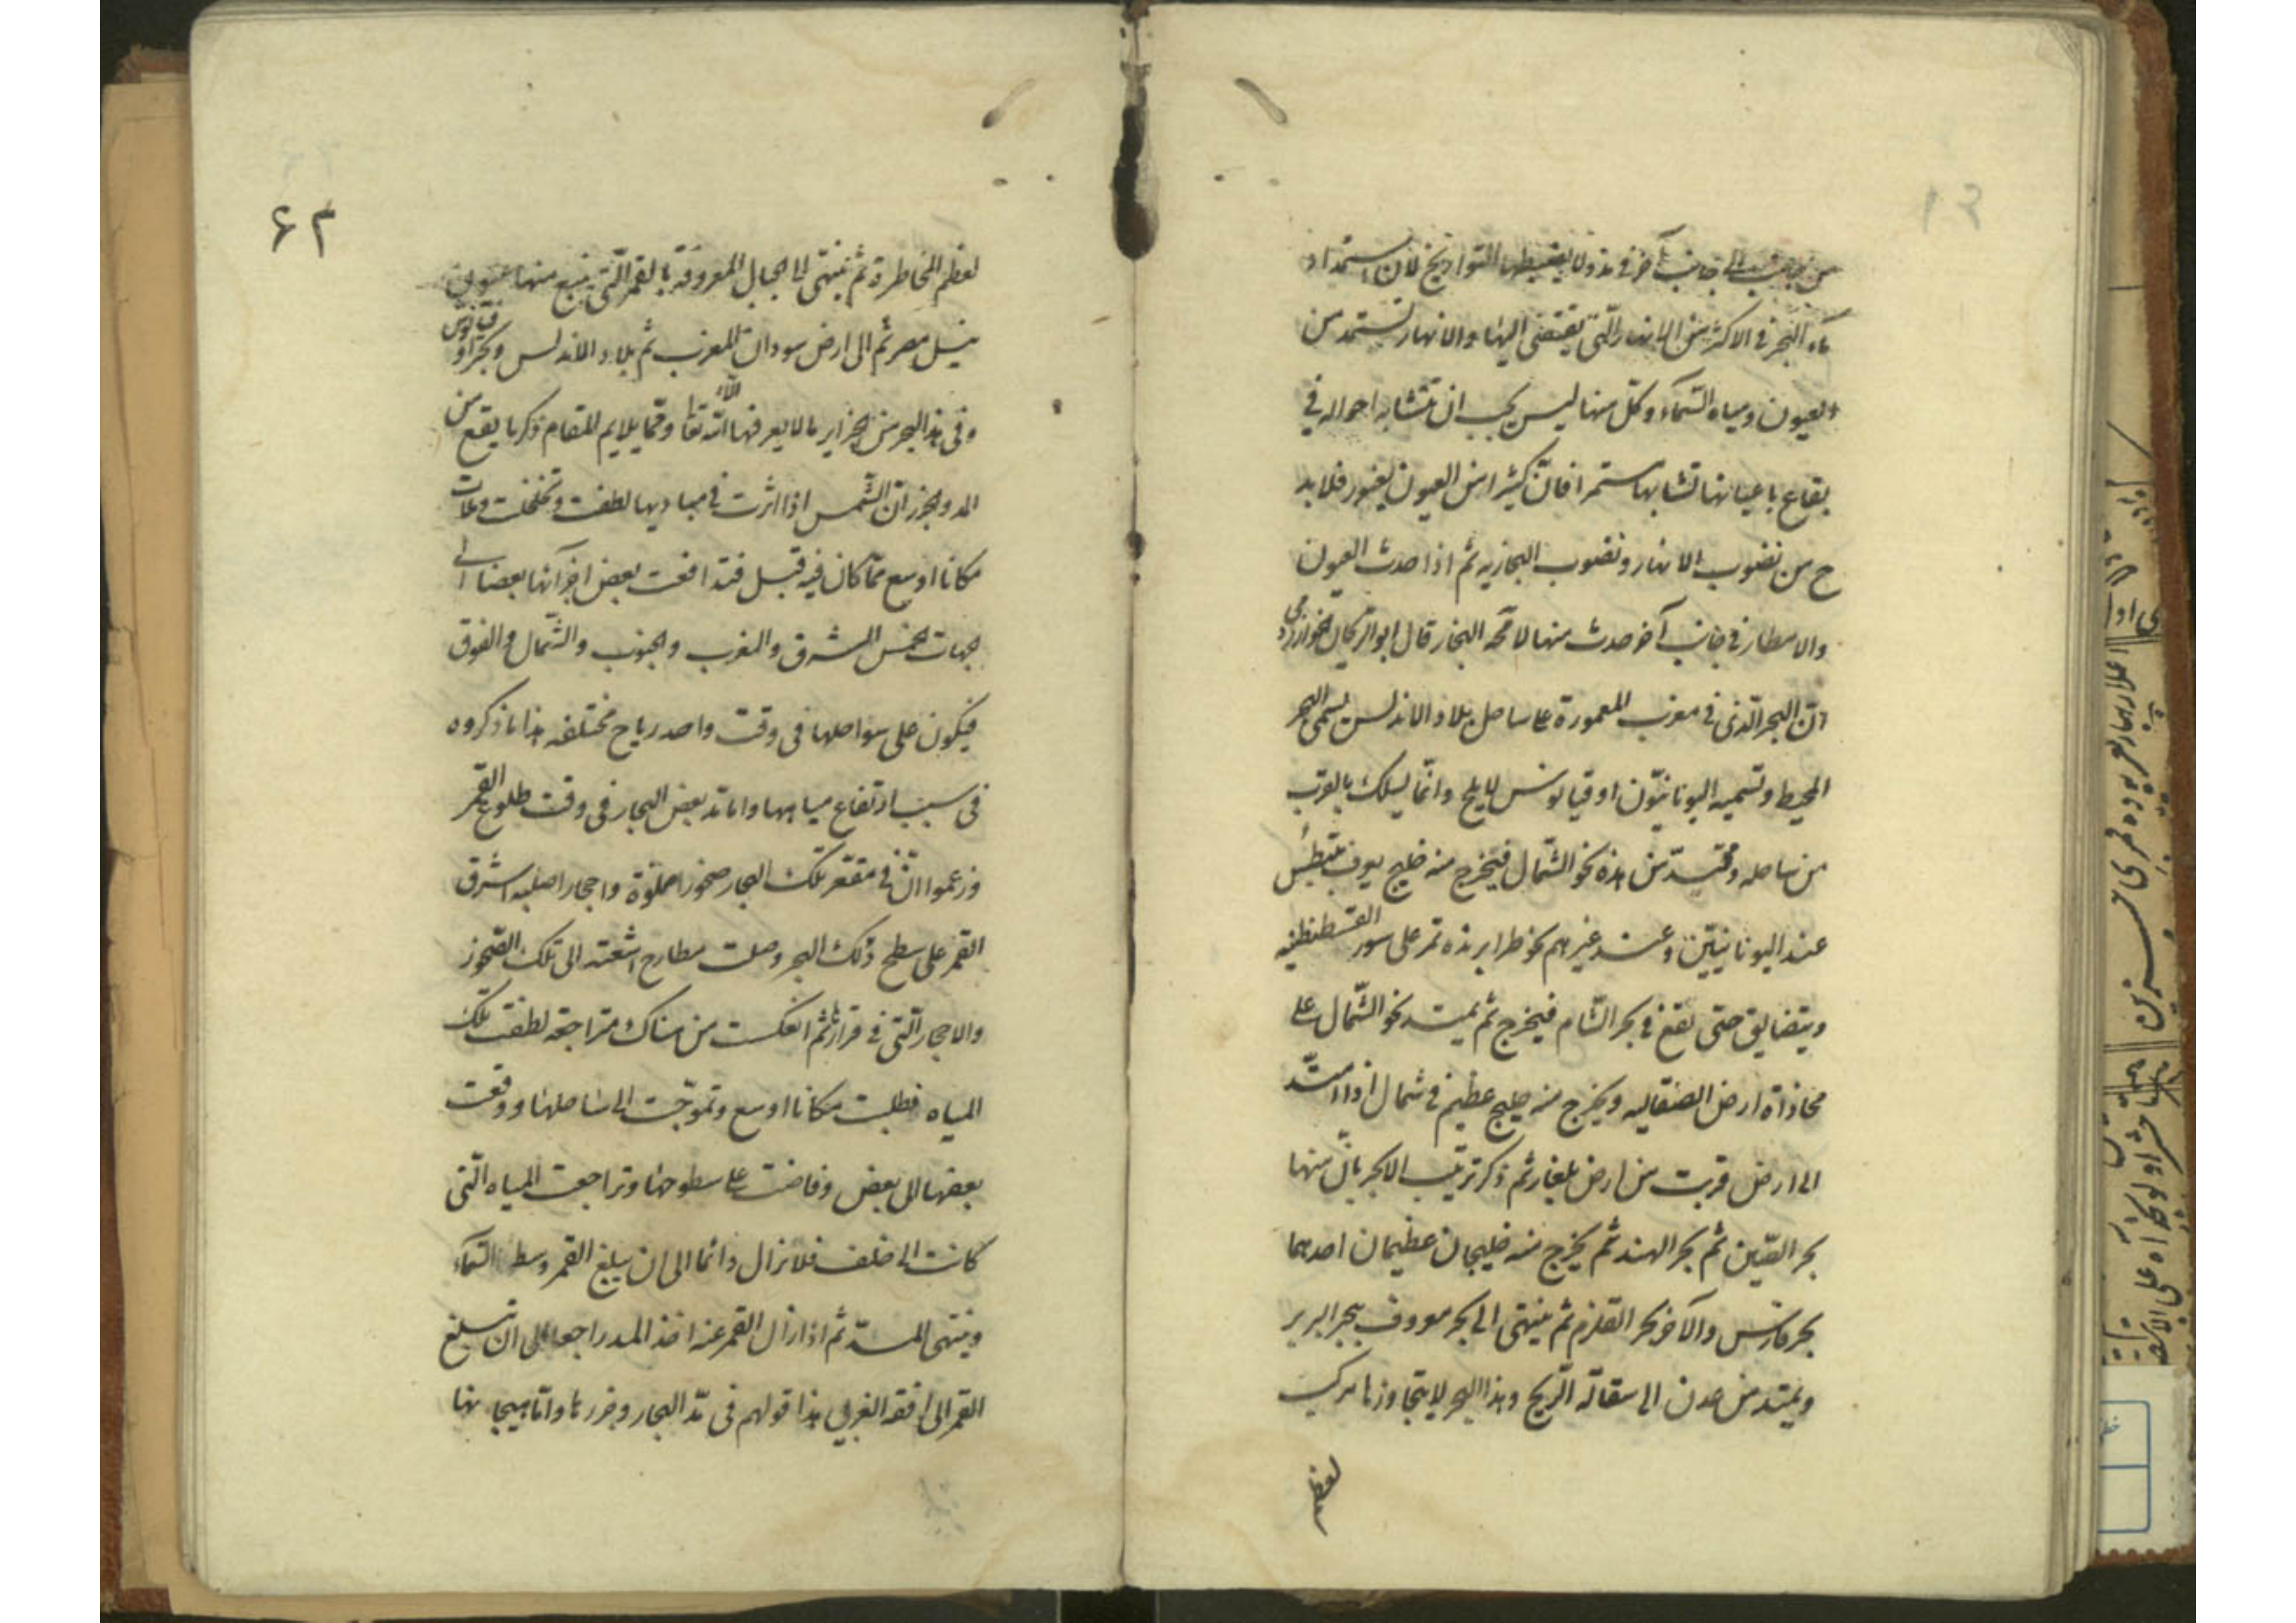 من جانب الى جانب آخر في مدد لا يضبطها التواريخ لان استمداد
ماء البحر في الاكثر من الانهار التي يفضى اليها والانهار تستمد من
العيون ومياه السماء وكل منها ليس يجب ان يتشابه احواله في
بقاع باعيانها تشابها مستمرا فان كثيرا من العيون يغور فلا بد
ح من نضوب الانهار ونضوب البحار به ثم اذا حدث العيون
والامطار في جانب آخر حدث منها لا محة البحار قال ابو الريحان الخوارزمي
ان البحر الذي في مغرب المعمورة على ساحل بلاد الاندلس يسمى البحر
المحيط وتسميه اليونانيون اوقيانوس لا يلج وانما يسلك بالقرب
من ساحله ويمتد من هذه نحو الشمال فيخرج منه خليج يعرف بنيطس
عند اليونانيين وعند غيرهم بحر طرابزنده تمر على سور القسطنطنيه
ويتضايق حتى تقع في بحر الشام فيخرج ثم يمتد نحو الشمال على
محاذاة ارض الصقاليه ويخرج منه خليج عظيم في شمال اذا امتد
الى ارض قربت من ارض بلغار ثم ذكر ترتيب الابحر بان منها
بحر الصين ثم بحر الهند ثم يخرج منه خليجان عظيمان احدهما
بحر فارس والآخر بحر القلزم ثم ينتهى الى بحر معروف ببحر البربر
ويمتد من عدن الى سفالة الزنج وهذا البحر لا يتجاوزها مركب
لعظم
۶۲
لعظم المخاطرة ثم ينتهى الى الجبال المعروفة بالقمر التي ينبع منها عيون
نيل مصر ثم الى ارض سودان المغرب ثم بلاد الاندلس وبحر اوقيانوس
وفى هذا البحر من الجزاير ما لا يعرفها الا الله تعا ومما يلايم المقام ذكر ما يقع من
المد والجزر ان الشمس اذا اثرت في مياديها لطفت وتخلخلت وملات
مكانا اوسع مما كان فيه قبل فتدافعت بعض اجزائها بعضا الى
جهات خمس المشرق والمغرب والجنوب والشمال والفوق
فيكون على سواحلها فى وقت واحد رياح مختلفه هذا ما ذكروه
فى سبب ارتفاع مياهها واما مد بعض البحار فى وقت طلوع القمر
وزعموا ان في مقعر تلك البحار صخورا صلبه واحجارا صلبه اشرق
القمر على سطح ذلك البحر وصلت مطارح اشعته الى تلك الصخور
والاحجار التي في قرارها ثم انعكست من هناك متراجعة لطفت تلك
المياه فطلبت مكانا اوسع وتموجت الى ساحلها ووقعت
بعضها الى بعض وفاضت على سطوحها وتراجعت المياه التي
كانت الى خلف فلا تزال دائما الى ان يبلغ القمر وسط السماء
وينتهى المد ثم اذا زال القمر عنه اخذ المد راجعا الى ان تبلغ
القمر الى افقه الغربي هذا قولهم فى مد البحار وجزرها واما هيجانها